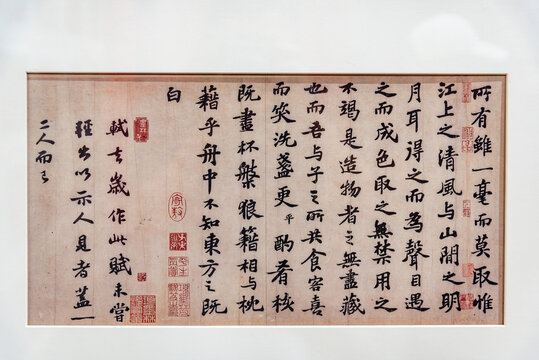 所有雖一毫而莫取惟
江上之清風與山間之明
月耳得之而為聲目遇
之而成色取之無禁用之
不竭是造物者之無盡藏
也而吾與子之所共食客喜
而笑洗盞更平酌肴核
既盡杯槃狼籍相與枕
藉乎舟中不知東方之既
白
軾去歲作此賦未嘗
輕出以示人見者蓋一
二人而已